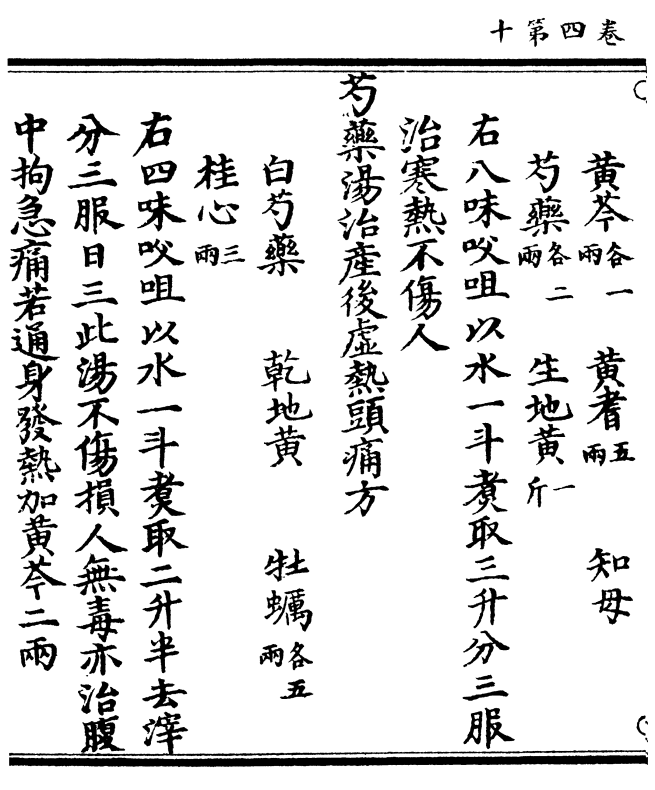 卷四第十
黃芩各一兩 黃耆五兩 知母
芍藥各二兩 生地黃一斤
右八味㕮咀以水一斗煑取三升分三服
治寒熱不傷人
芍藥湯治產後虛熱頭痛方
白芍藥 乾地黃 牡蠣各五兩
桂心三兩
右四味㕮咀以水一斗煑取二升半去滓
分三服日三此湯不傷損人無毒亦治腹
中拘急痛若通身發熱加黃芩二兩